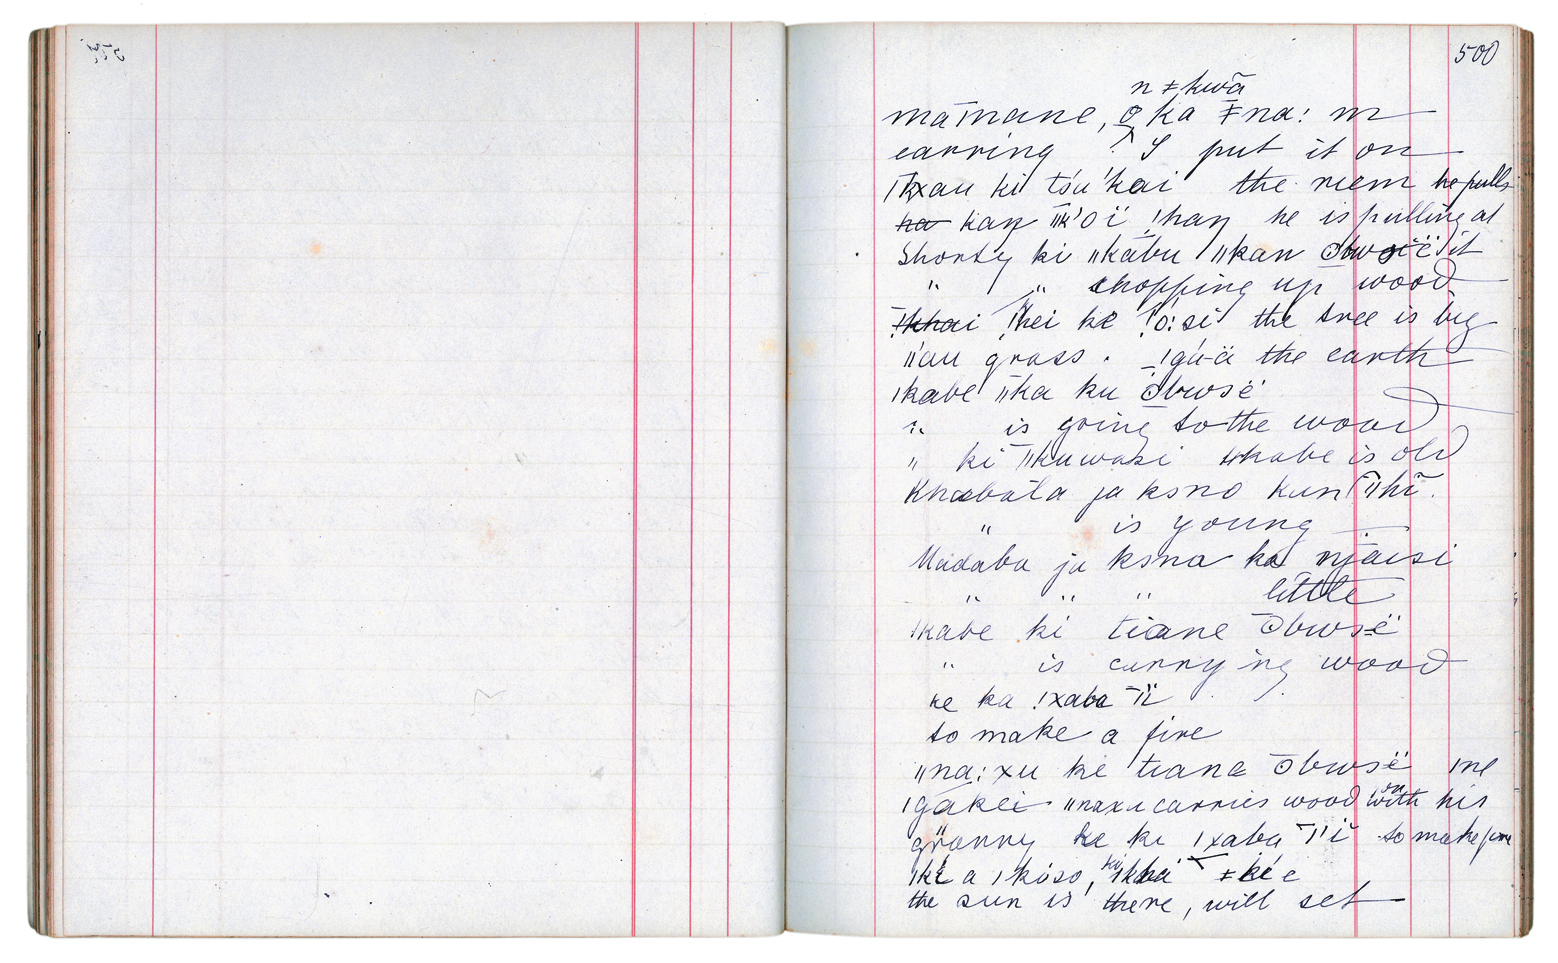 500
n ǂ kwā
mām̄ane, ʘ̱ ka ǂ na: m
earring ? I put it on
ǀk̲xau ki ts'u'kai the riem he pulls
k̶a̶ kaŋ ǁk'oï ǃhaŋ he is pulling at
Shorty ki ǁkābu ǁkan ʘ̄bwoïë it
" " chopping up wood
ǃkhai ǃhei ke ǃō:si the tree is big
ǁ'au grass . ǃgú-ä the earth
ǀkabe ǁka ku ʘ̄bwsë
" is going to the wood
" ki ǁkuwasi ǁkabe is old
Khabata ja ksno kun ǁhī.
" is young
Madaba ja ksna ka njaisi
" " " little
ǀkabe ki tiane ʘ̄bwsë
" is carrying wood
ke ka ǃxaba ǀ'ï
to make a fire
ǁna:xu ke tiana ʘ̄bwsë ǀne
ǀgākei ǁnaxu carries wood with his on
granny ke ki ǀxaba ǀ'i to make fire
ǀkē a ǀkóso, ki ǀkhá ǂ kíe
the sun is there, will set